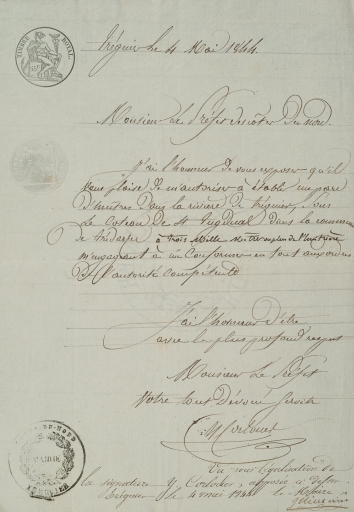 TIMBRE ROYAL
Tréguier Le 4 Mai 1844
Monsieur le Préfet des côtes du nord
J'ai l'honneur de vous exposer qu'il
vous plaise de m'autoriser à établir un parc
d'huitre dans la rivière de tréguier, sous
Le Coteau de St Tugdual dans la commune
de trédarzec à trois mille
m'engageant à me Conformer en tout aux ordres
De L'autorité Compétente
J'ai L'honneur d'être
avec le plus profond respect
Monsieur Le Préfet
Votre tout Dévoué Servite
Vu pour légalisation de
la signature Y. apposée
Tréguier le 4 mai 1844 le Maire